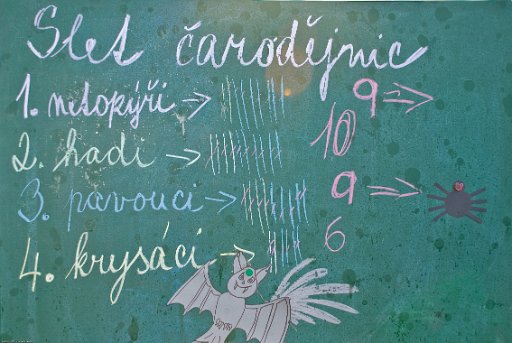 Slet čarodějnic
1. netopýři → 9 ⇒
2. hadi → 10
3. pavouci → 9 ⇒
4. krysáci → 6